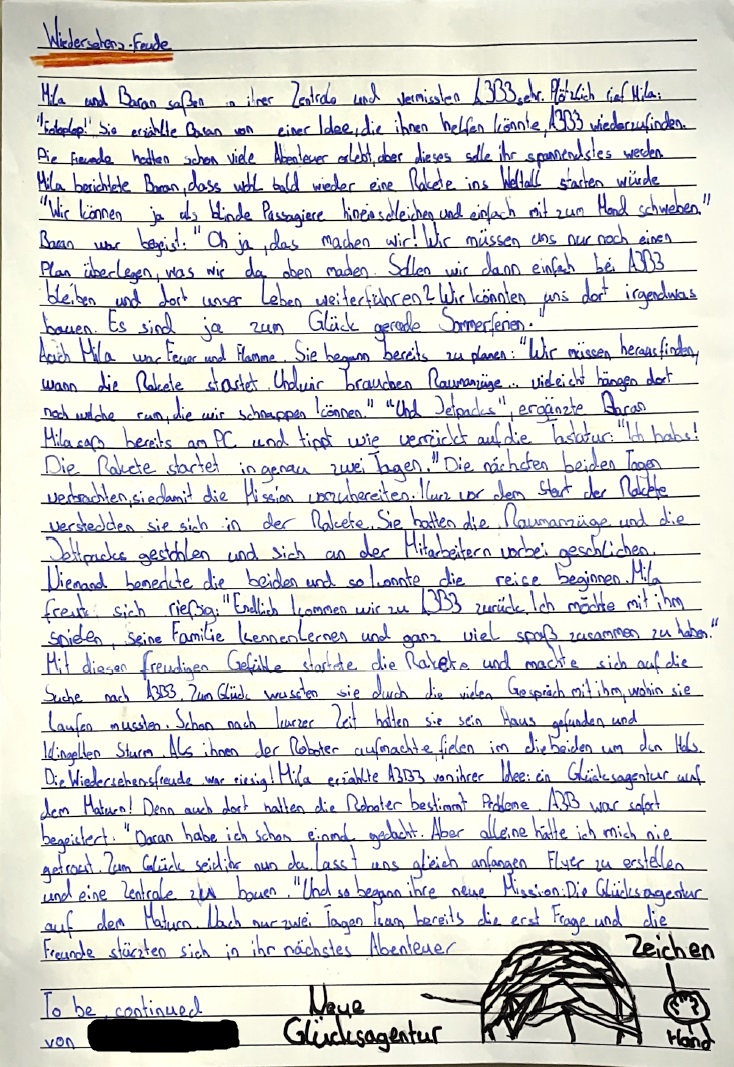 Wiedersehens-Feude
Mila und Baran saßen in ihrer Zentrale und vermissten A3B3 sehr. Plötzlich rief Mila:
Sie erzählte Baran von einer Idee, die ihnen helfen könnte, A3B3 wiederzufinden.
Die Freunde hatten schon viele Abenteuer erlebt, aber dieses solle ihr spannendstes werden
Mila berichtete Baran, dass wohl bald wieder eine Rakete ins Weltall starten würde
"Wir können ja als blinde Passagiere hineinschleichen und einfach mit zum Mond schweben."
Baran war begeist: "Oh ja, das machen wir! Wir müssen uns nur noch einen
Plan überlegen, was wir da oben machen. Sollen wir dann einfach bei A3B3
bleiben und dort unser Leben weiterführen? Wir könnten uns dort irgendwas
bauen. Es sind ja zum Glück gerade Sommerferien."
Auch Mila war Feuer und Flamme. Sie begann bereits zu planen: "Wir müssen herausfinden,
wann die Rakete startet. Und wir brauchen Raumanzüge... vieleicht hängen dort
noch welche rum, die wir schnappen können." "Und Jetpacks", ergänzte Baran
Mila saß bereits am PC und tippt wie verrückt auf die Tastatur: "Ich habs!
Die Rakete startet in genau zwei Tagen." Die nächsten beiden Tagen
verbrachten, sie damit die Mission vorzubereiten. Kurz vor dem Start der Rakete
versteckten sie sich in der Rakete. Sie hatten die Raumanzüge und die
Jettpacks gestohlen und sich an der Mitarbeitern vorbei geschlichen.
Niemand bemerkte die beiden und so konnte die reise beginnen. Mila
freute sich rießig: "Endlich kommen wir zu A3B3 zurück. Ich möchte mit ihm
spielen, seine Familie kennenlernen und ganz viel spaß zusammen zu haben."
Mit diesen freudigen Gefühle startete die Rakete und machte sich auf die
Suche nach A3B3. Zum Glück wussten sie durch die vielen Gespräch mit ihm, wohin sie
laufen mussten. Schon nach kurzer Zeit hatten sie sein Haus gefunden und
klingelten Sturm. Als ihnen der Roboter aufmachte, fielen im die beiden um den Hals.
Die Wiedersehensfreude war riesig! Mila erzählte A3B3 von ihrer Idee: ein Glücksagentur auf
dem Maturn! Denn auch dort hatten die Roboter bestimmt Probleme. A3B3 war sofort
begeistert: "Daran habe ich schon einmal gedacht. Aber alleine hätte ich mich nie
getraut. Zum Glück seid ihr nun da. Lasst uns gleich anfangen Flyer zu erstellen
und eine Zentrale zu bauen. "Und so begann ihre neue Mission: Die Glücksagentur
auf dem Maturn. Nach nur zwei Tagen kam bereits die erst Frage und die
Freunde stürzten sich in ihr nächstes Abenteuer
Zeichen
To be continued
Neue
Glücksagentur
von
Hand